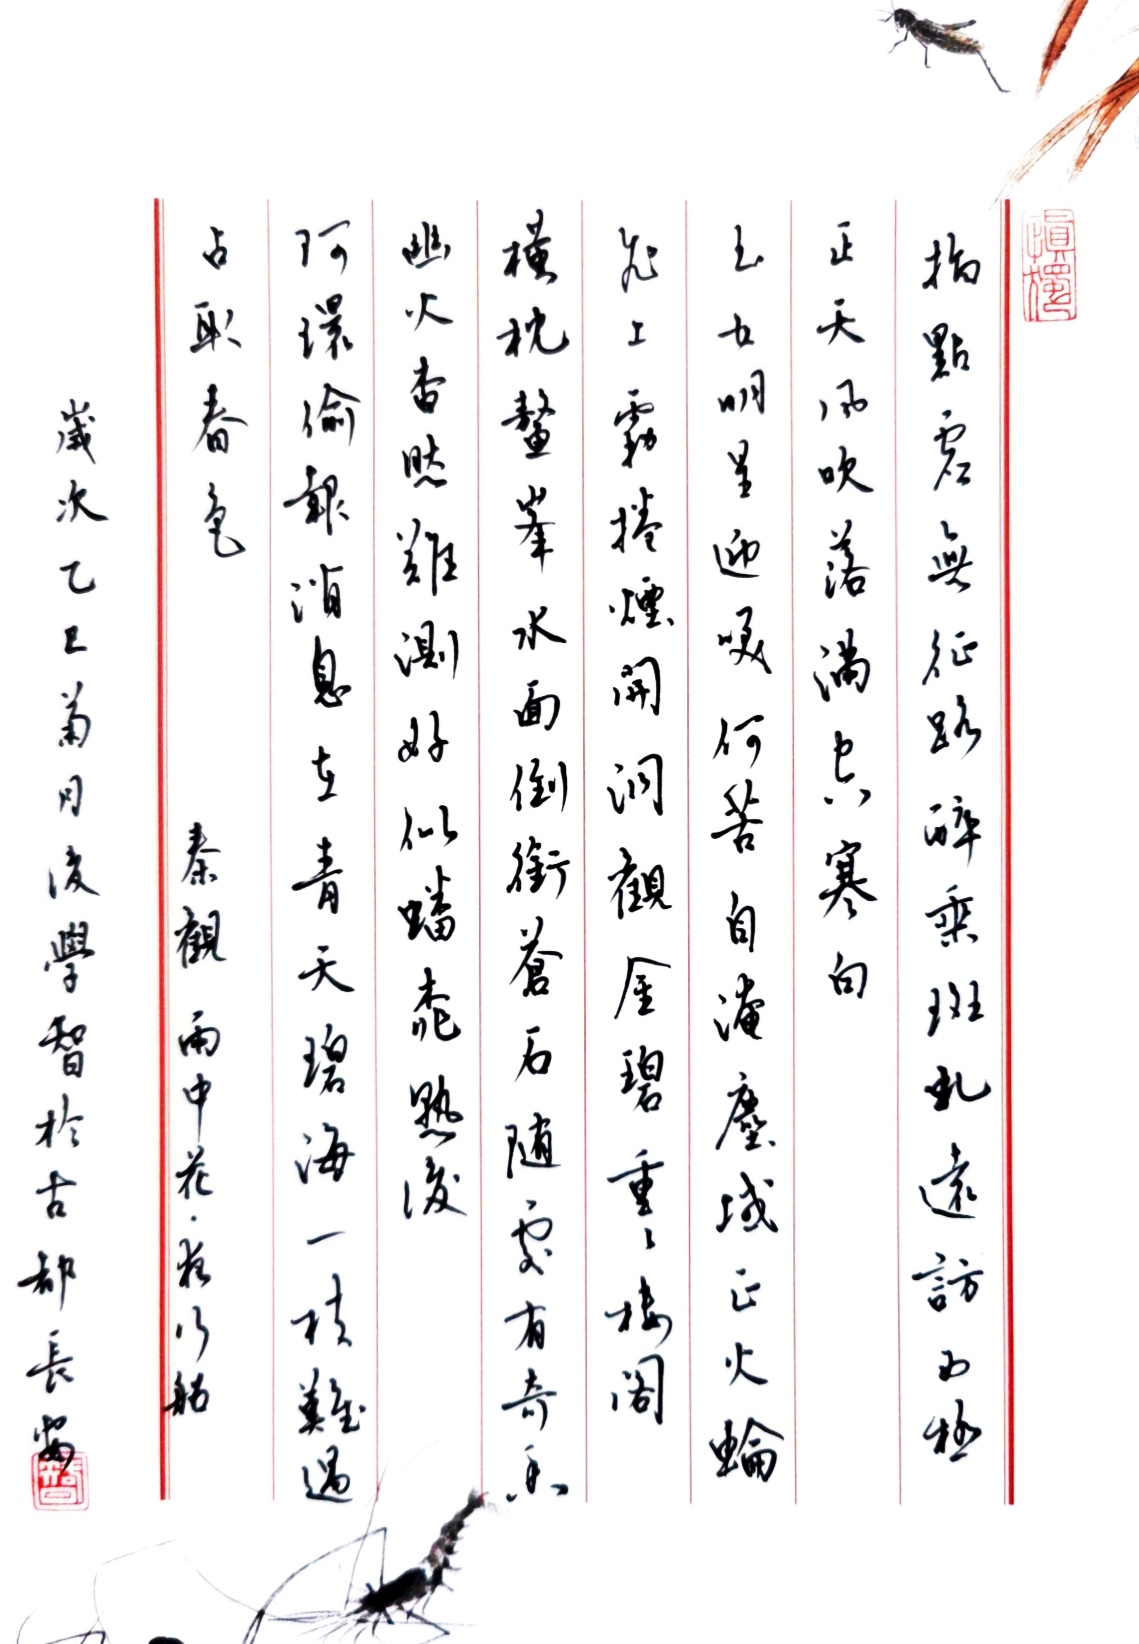 指點虛無征路醉乘斑虬遠訪西極
正天風吹落滿空寒白
玉女明星迎嘆何苦自淹塵域正火輪
飛上霧捲煙開洞觀金碧重〻樓閣
橫枕鰲峯水面倒銜蒼石隨處有奇香
幽火杳然難測好似蟠桃熟後
阿環偷報消息在青天碧海一枝難遇
占取春色
秦觀 雨中花·夜行船
歲次乙巳菊月後學智於古都長安